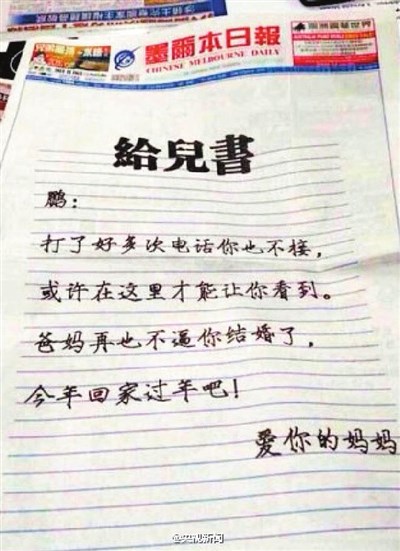 墨爾本日報
CHINESE MELBOURNE DAILY
給兒書
鹏：
打了好多次电话你也不接，
或许在这里才能让你看到。
爸妈再也不逼你结婚了，
今年回家过年吧！
爱你的妈妈
@央视新闻